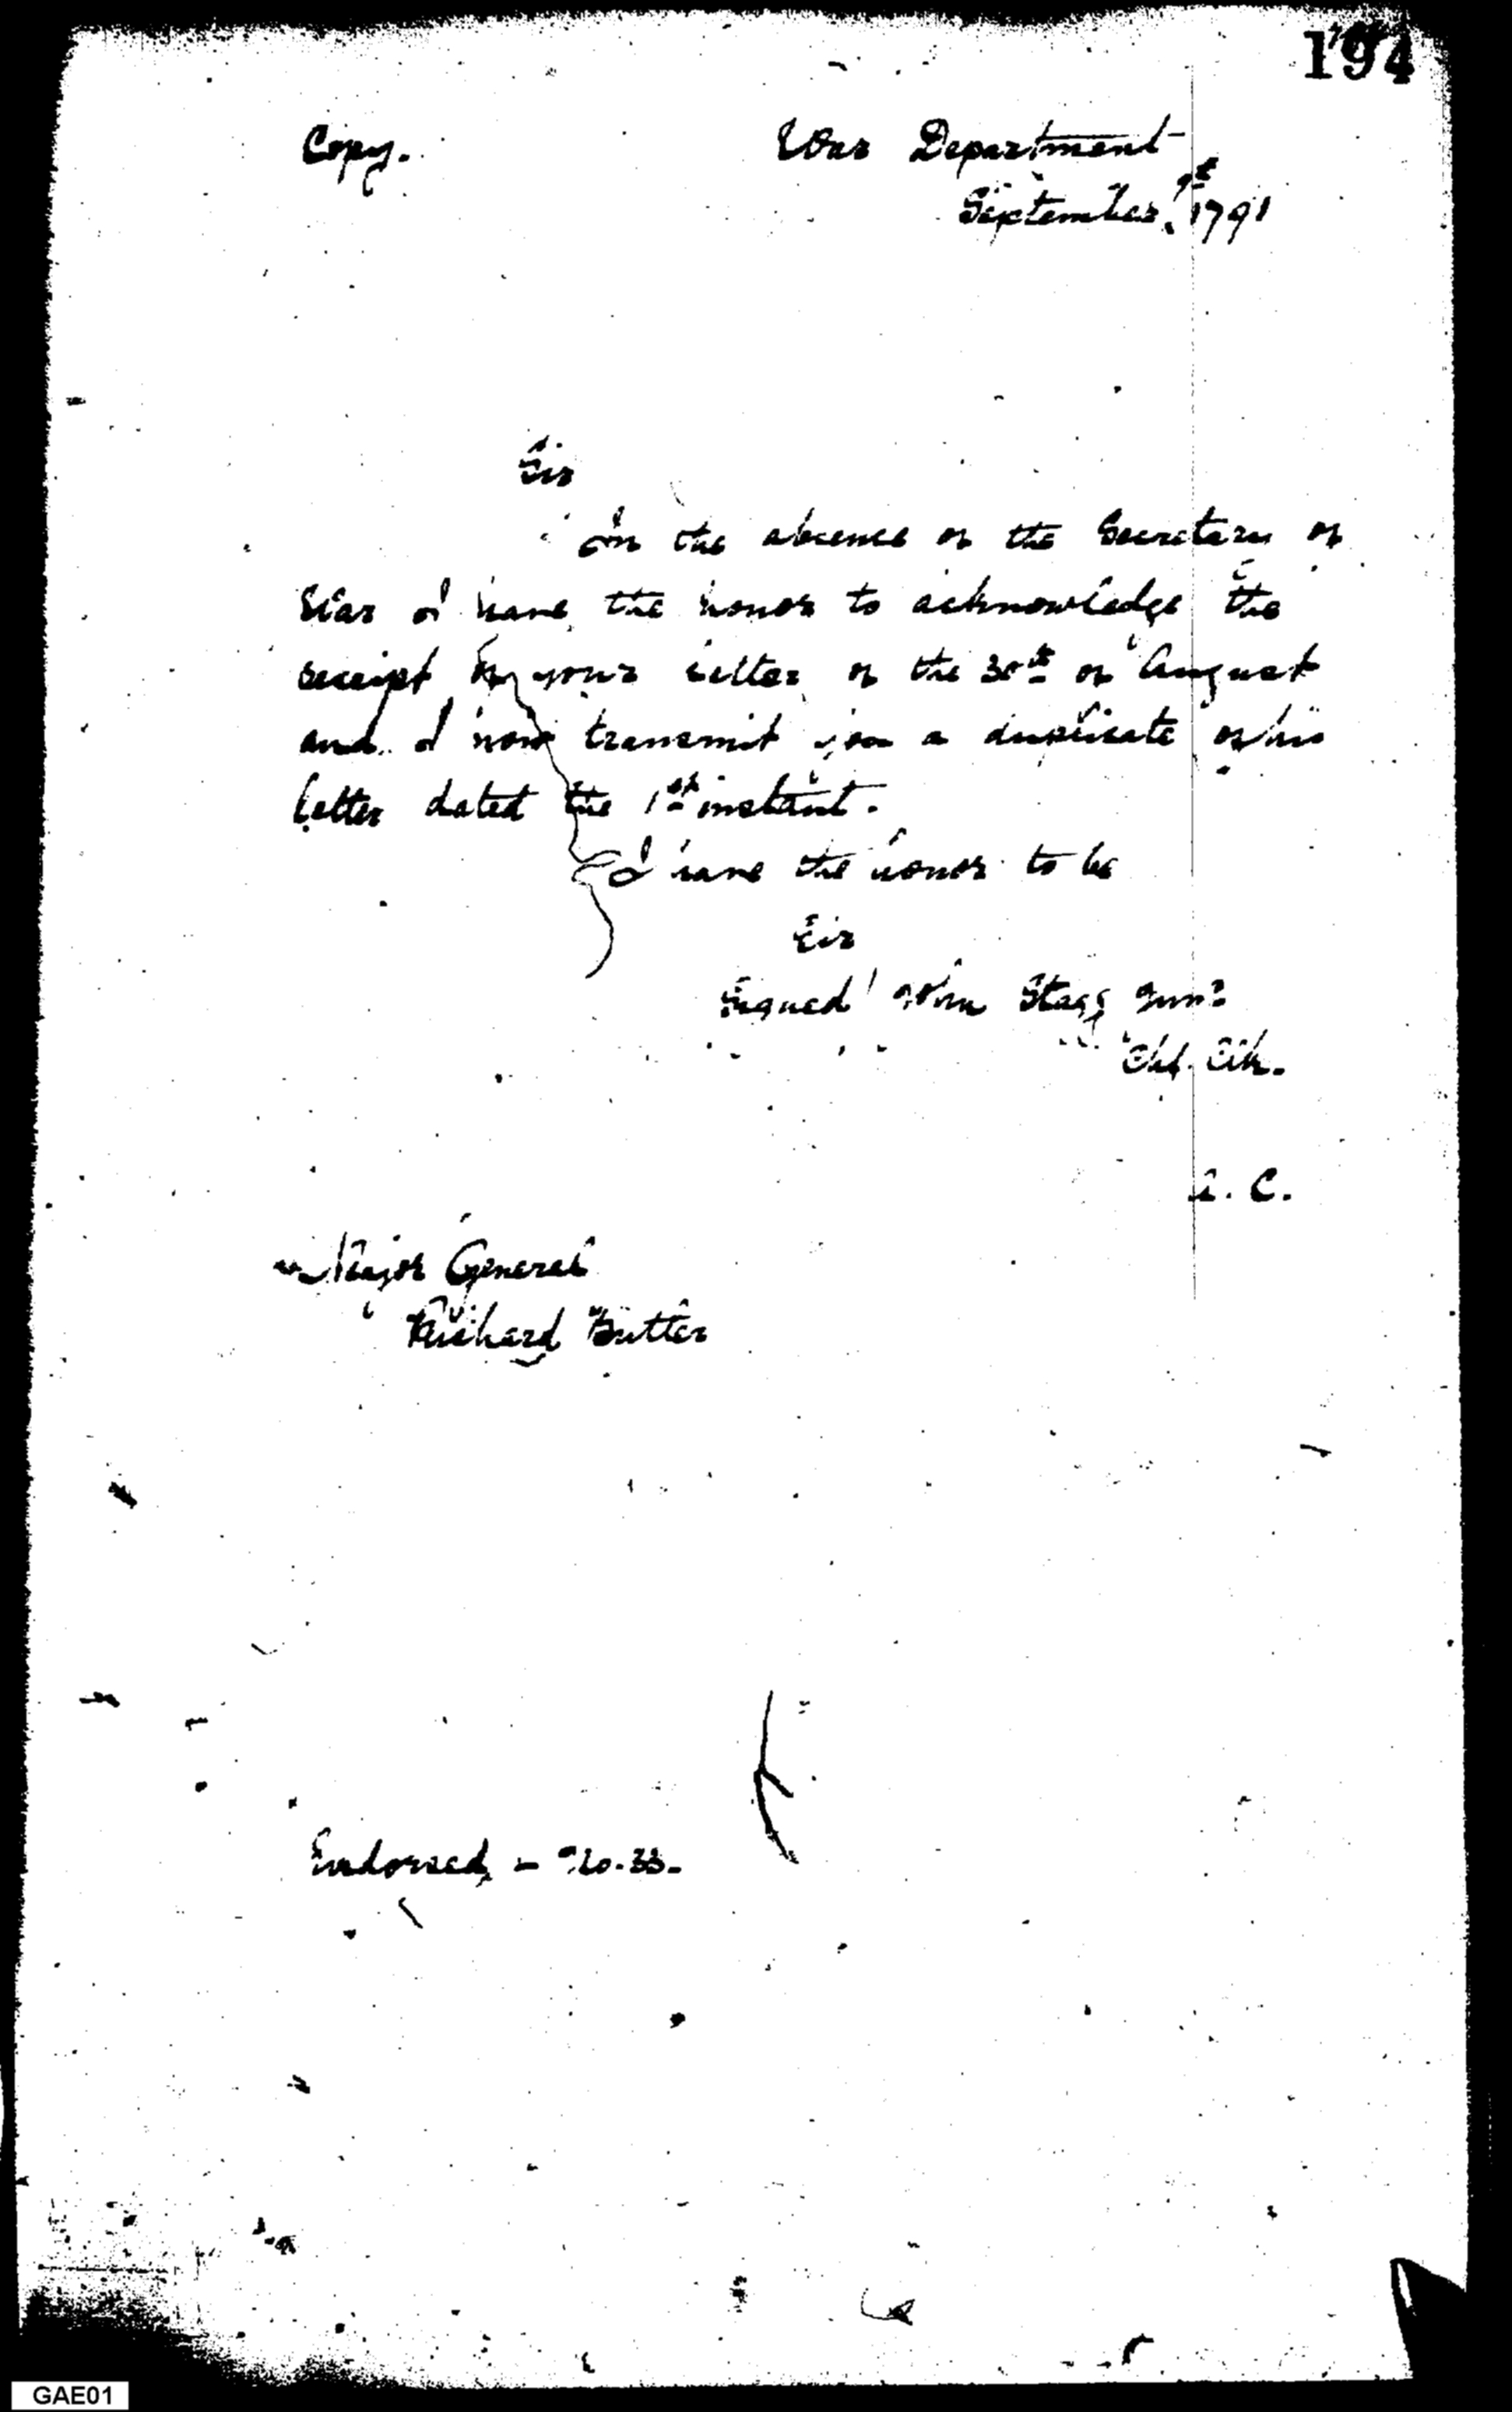 194
Copy. War Department
September 1791
Sir
In the absence of the Secretary of
War I have the honor to acknowledge the
receipt of your letter of the 30th of August
and I now transmit you a duplicate of his
letter dated the 1st instant.
I have the honor to be
Sir
Signed John Stagg Junr
Chf. Clk.
A. C.
Major General
Richard Butler
Endorsed - No. 33.
GAE01